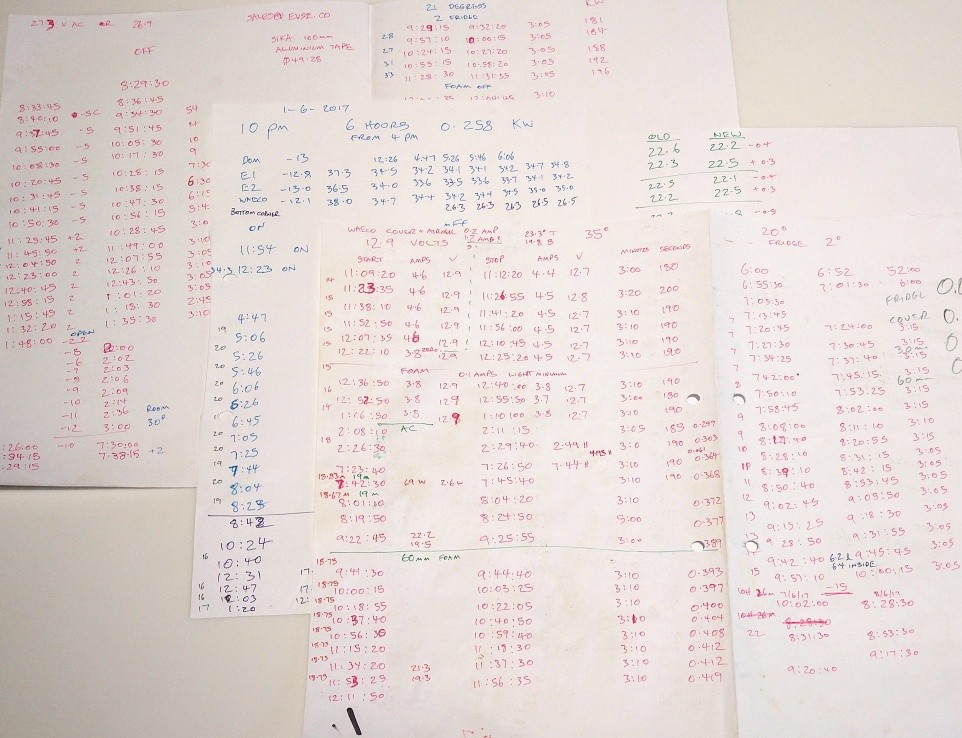 27.3 V AC OR 26.9
OFF
SALES@ EVSE.CO
SIKA 100mm
ALUMINIUM TAPE
$49.28
8:29:30
8:33:45 8:36:45
8:40:10 9:34:30
9:37:45 -5 9:51:45
9:55:00 -5 10:05:30
10:08:30 -5 10:17:30
10:20:45 -5 10:28:15
10:31:45 -5 10:38:15
10:41:15 -5 10:47:30
10:50:30 -5 10:56:15
11:25:45 +2 10:28:45
11:45:50 +2 11:49:00
12:04:50 2 12:07:55
12:23:00 2 12:26:10
12:40:45 2 12:43:50
12:58:15 2 1:01:20
1:15:45 2 1:18:30
1:32:20 2 1:35:30
1:48:00 OPEN
-5 2:00
-6 2:02
-7 2:03
-8 2:06
-9 2:09
-10 2:14
-11 2:36
-12 3:00
ROOM
30°
:26:00 -10 7:30:00
:34:15 7:38:15 +2
:29:15
21 DEGREES
2 FRIDGE KW
9:29:15 9:32:20 3:05 181
28 9:57:10 10:00:15 3:05 184
27 10:24:15 10:27:20 3:05 188
31 10:55:15 10:58:20 3:05 192
33 11:28:30 11:31:35 3:05 196
FOAM OFF
3:10
1-6-2017
10 PM 6 HOURS 0.258 KW
FROM 4 PM
DOM -13 12:26 4:47 5:26 5:46 6:06
E1 -12.8 37.3 34.5 34.2 34.1 34.1 34.2 34.7 34.8
E2 -13.0 36.5 34.0 33.6 33.5 33.6 33.7 34.1 34.2
WAECO -12.1 38.0 34.7 34.4 34.2 34.4 34.5 35.0 35.0
26.3 26.3 26.3 26.5 26.5
BOTTOM CORNER
ON OFF
11:54 ON
34.3 12:23 ON
4:47
19 5:06
20 5:26
20 5:46
20 6:06
20 6:26
19 6:45
20 7:05
20 7:25
19 7:44
20 8:04
19 8:23
8:43
10:24
16 10:40
12:31
16 12:47
16 1:03
17 1:20
OLD NEW
22.6 22.2 -0.4
22.3 22.5 +0.3
22.5 22.1 -0.4
22.2 22.5 +0.3
WAECO COVER + AIRGEL 0.2 AMP 23.3° T 35°
12.9 VOLTS 19.8 B
START AMPS V STOP AMPS V MINUTES SECONDS
11:09:20 4.6 12.9 11:12:20 4.4 12.7 3:00 180
11:23:35 4.6 12.9 11:26:55 4.5 12.8 3:20 200
11:38:10 4.6 12.9 11:41:20 4.5 12.7 3:10 190
11:52:50 4.6 12.9 11:56:00 4.5 12.7 3:10 190
12:07:35 4.6 12.9 12:10:45 4.5 12.7 3:10 190
12:22:10 3.8 ZERO 12.9 12:25:20 4.5 12.7 3:10 190
FOAM 0.1 AMPS LIGHT MINIMUM
12:36:50 3.8 12.9 12:40:00 3.8 12.7 3:10 190
12:52:50 3.8 12.9 12:55:50 3.7 12.7 3:00 180
1:06:50 3.8 12.9 1:10:00 3.8 12.7 3:10 190
AC
2:08:10 2:11:15 3:05 185 0.297
2:26:30 2:29:40 2:49 H 3:10 190 0.303
7:23:40 7:26:50 7:44 H 3:10 190 0.364
7:42:30 69 W 2.6 W 7:45:40 3:10 190 0.368
18.67 m 19 m
8:01:10 8:04:20 3:10 0.372
8:19:50 8:24:50 5:00 0.377
9:22:45 22.2 9:25:55 3:00 .389
19.5
60mm FOAM
18.75 9:41:30 9:44:40 3:10 0.393
18.75 10:00:15 10:03:25 3:10 0.397
18.75 10:18:55 10:22:05 3:10 0.400
18.75 10:37:40 10:40:50 3:10 0.404
18.75 10:56:30 10:59:40 3:10 0.408
18.75 11:15:20 11:18:30 3:10 0.412
18.75 11:34:20 21.3 11:37:30 3:10 0.412
18.75 11:53:25 19.3 11:56:35 3:10 0.419
12:11:50
20°
FRIDGE 2°
6:00 6:52 52:00
6:55:30 7:01:30 6:00
7:05:30 FRIDGE
7:13:45 COVER
7:20:45 7:24:00 3:15
7:27:30 7:30:45 3:15
7:34:25 7:37:40 3:15
7:42:00 7:45:15 3:15
60m
7:50:10 7:53:25 3:15
7:58:45 8:02:00 3:15
9 8:08:00 8:11:10 3:10
9 8:17:40 8:20:55 3:15
10 8:28:10 8:31:15 3:05
8:39:10 8:42:15 3:05
11 8:50:40 8:53:45 3:05
12 9:02:45 9:05:50 3:05
13 9:15:25 9:18:30 3:05
9:28:50 9:31:55 3:05
9:42:40 9:45:45 3:05
64 INSIDE
15 9:57:10 10:00:15 3:05
7/6/17 -15 8/6/17
10:02:00 8:28:30
22 8:31:30 8:53:30
9:17:30
9:20:40